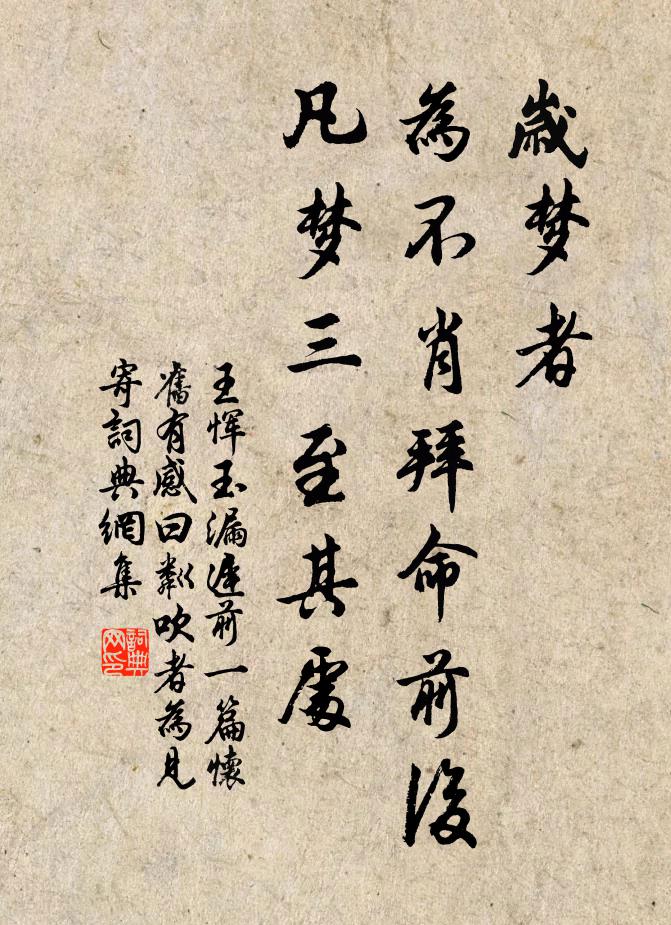 歲梦者
為不肖拜命前後
凡梦三至其處
王惲玉漏遲前一篇懷
舊有感曰鄰吹者為見
寄詞典網集
詞典网印